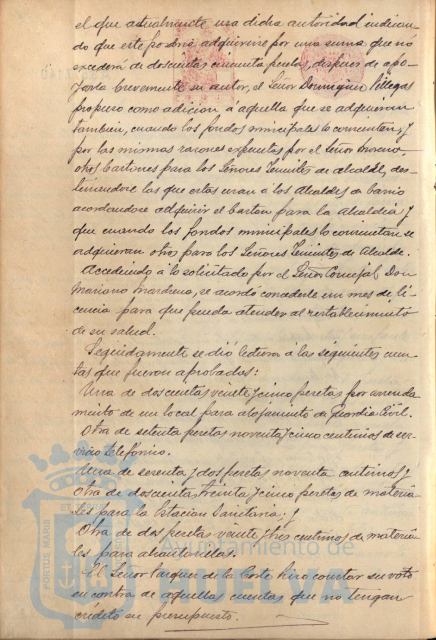 el que actualmente usa dicha autoridad indican-
do que este podría adquirirse por una suma que no
excederá de doscientas cincuenta pesetas, despues de apo-
yarla brevemente su autor, el Señor Dominguez Villegas
propuso como adición a aquella que se adquieran
tambien, cuando los fondos municipales lo consientan, y
por las mismas razones expuestas por el Señor Moreno,
otros bastones para los Señores Tenientes de alcalde, des-
tinandose los que estos usan á los Alcaldes de barrio
acordandose adquirir el baston para la Alcaldia y
que cuando los fondos municipales lo consientan se
adquieran otros para los Señores Tenientes de Alcalde.
Accediendo á lo solicitado por el Señor Concejal, Don
Mariano, se acordó concederle un mes de li-
cencia para que pueda atender al restablecimiento
de su salud.
Seguidamente se dió lectura á las siguientes cuen-
tas que fueron aprobadas:
Una de doscientas veinte y cinco pesetas por arrenda-
miento de un local para alojamiento de Guardia Civil.
Otra de setenta pesetas noventa y cinco centimos de ser-
vicio telefónico.
Una de sesenta y dos pesetas noventa centimos;
Otra de doscientas treinta y cinco pesetas de materia-
les para la Estacion Sanitaria; y
Otra de dos pesetas veinte y tres centimos de materia-
les para alcantarillas.
El Señor Vazquez de la Corte hizo constar su voto
en contra de aquellas cuentas que no tengan
crédito en presupuesto.
Ayuntamiento de
PORTUS MARIS